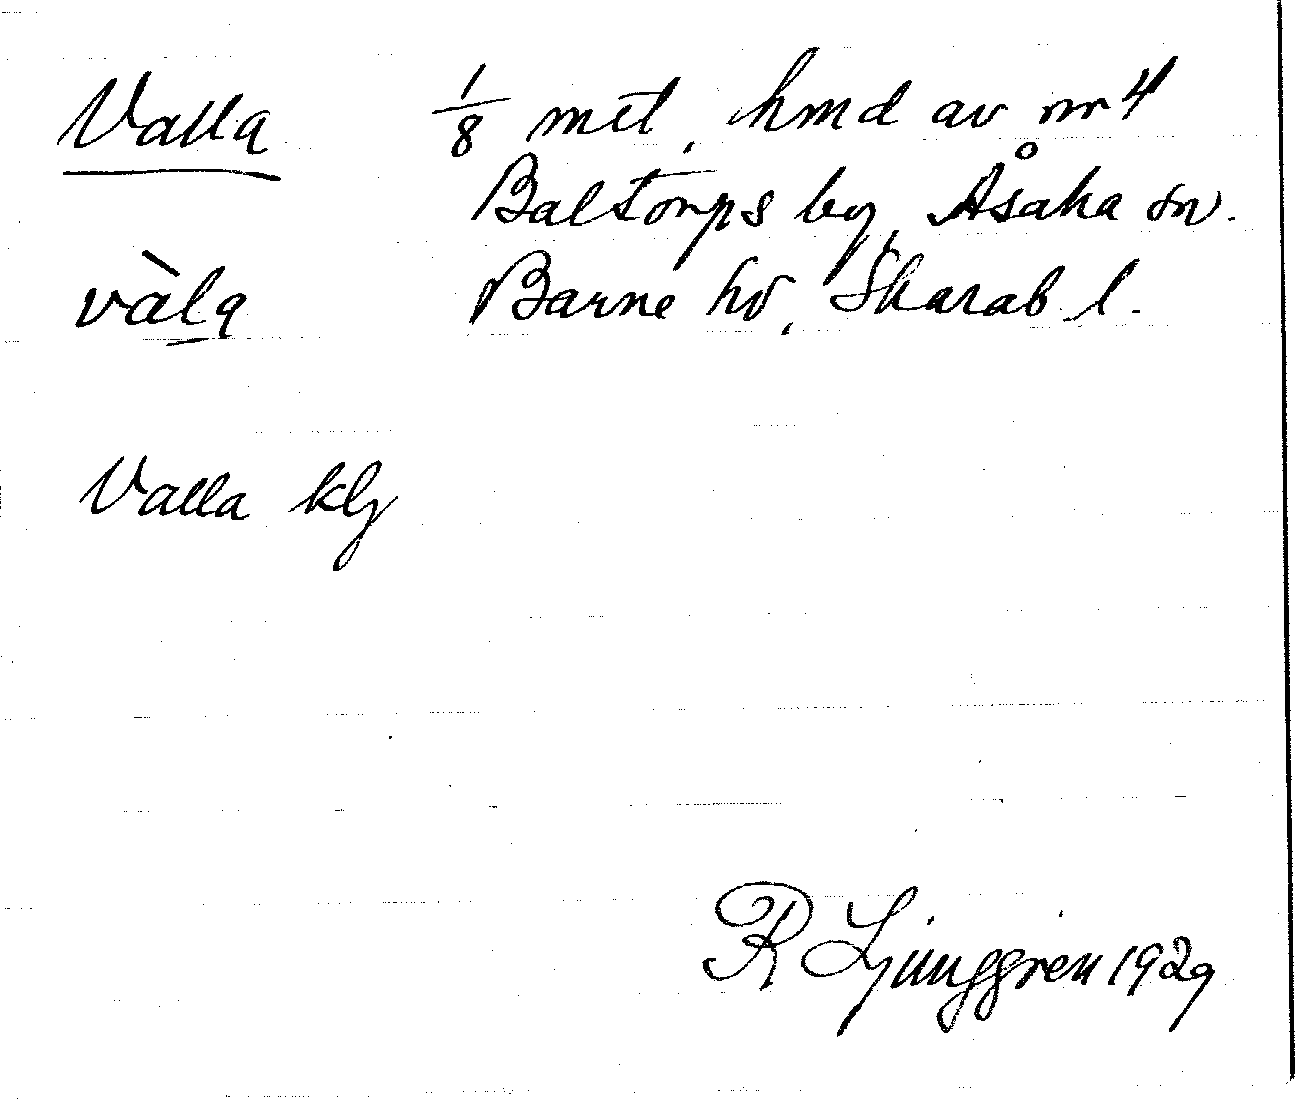 Valla 1/8 mtl, hmd av nr 4
Baltorps by, Åsaka sn.
vàla Barne hd, Skarab. l.
Valla klj
R Ljunggren 1929